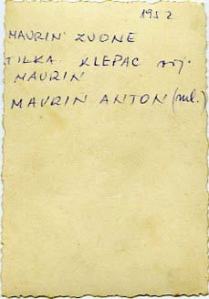 1952
MAVRIN ZVONE
TILKA KLEPAC roj.
MAVRIN
MAVRIN ANTON (ml.)